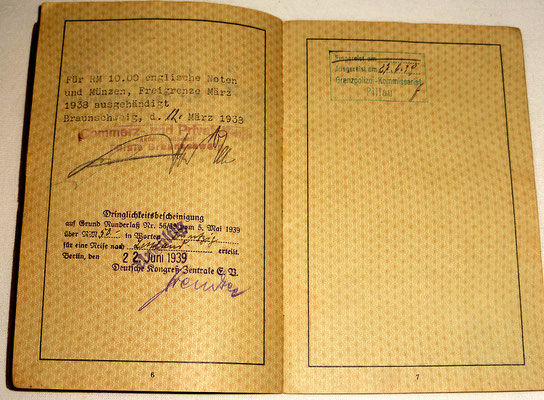 Für RM 10.00 englische Noten
und Münzen, Freigrenze März
1938 ausgehändigt
Braunschweig, d. 12. März 1938
Commerz- und Privat-
Dringlichkeitsbescheinigung
auf Grund Runderlaß Nr. 56/ vom 5. Mai 1939
über RM 50.- in Worten
für eine Reise nach erteilt.
Berlin, den 22. Juni 1939
Deutsche Kongreß-Zentrale E. V.
6
Eingereist am
Ausgereist am 27.6.
Grenzpolizei-Kommissariat
Pillau
7